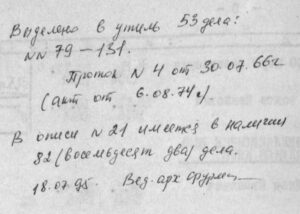 Выделено в утиль 53 дела:
NN 79 – 131.
Проток N 4 от 30.07.66 г
(акт от 6.08.74 г)
В описи N 21 имеется в наличии
82 (восемьдесят два) дела.
18.07.95. Вед. арх